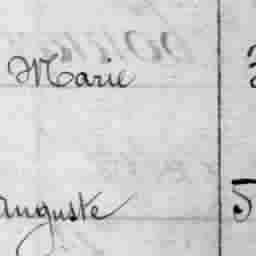 Marie
Auguste 5